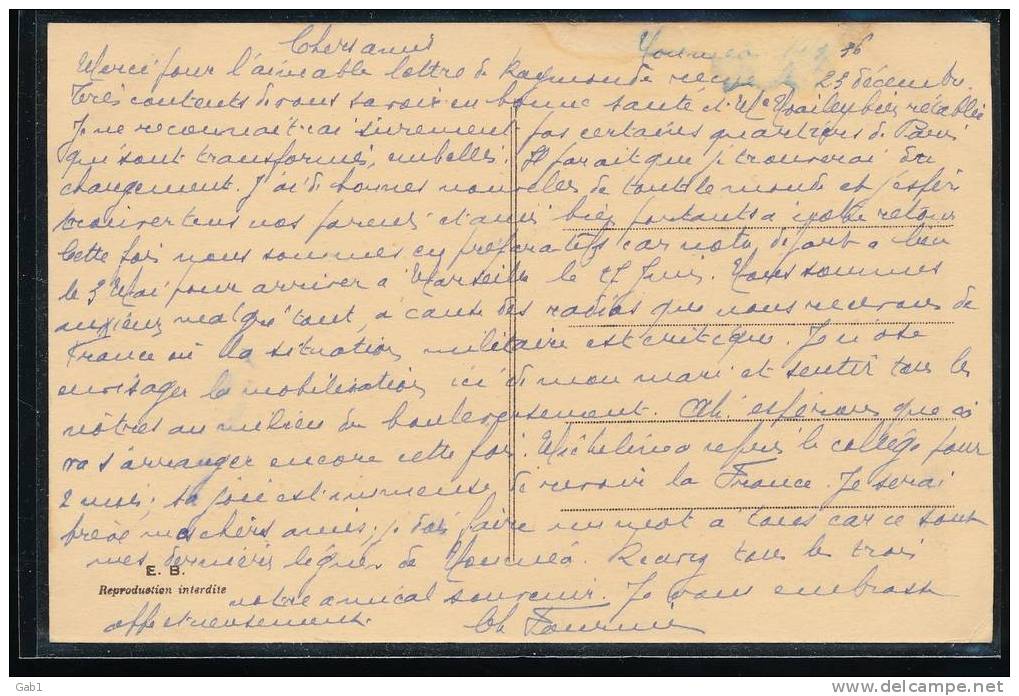 Chers amis
Nouméa 36
Merci pour l'aimable lettre de Raymonde reçue le 23 décembre.
Très contents de vous savoir en bonne santé et Mme bien rétablie
Je ne reconnaitrai surement pas certains quartiers de Paris
qui sont transformés, embellis. Il parait que je trouverai du
changement. J'ai de bonnes nouvelles de tout le monde et j'espère
trouver tous nos parents et amis bien portants a notre retour
Cette fois nous sommes en préparatifs car notre départ a lieu
le 3 Mai pour arriver à Marseille le Juin. Nous sommes
anxieux malgré tout, à cause des radios que nous recevons de
France où la situation militaire est critique. Je n'ose
envisager la mobilisation ici de mon mari et sentir tous les
nôtres au milieu du bouleversement. Ah! espérons que ça
va s'arranger encore cette fois. Micheline a repris le collège pour
2 mois, sa joie est immense de revoir la France. Je serai
brève mes chers amis, je dois faire un mot à tous car ce sont
mes dernières lignes de Nouméa. Recevez tous les trois
E. B.
Reproduction interdite
notre amical souvenir. Je vous embrasse
affectueusement.
Fournier
Gab1
www.delcampe.net